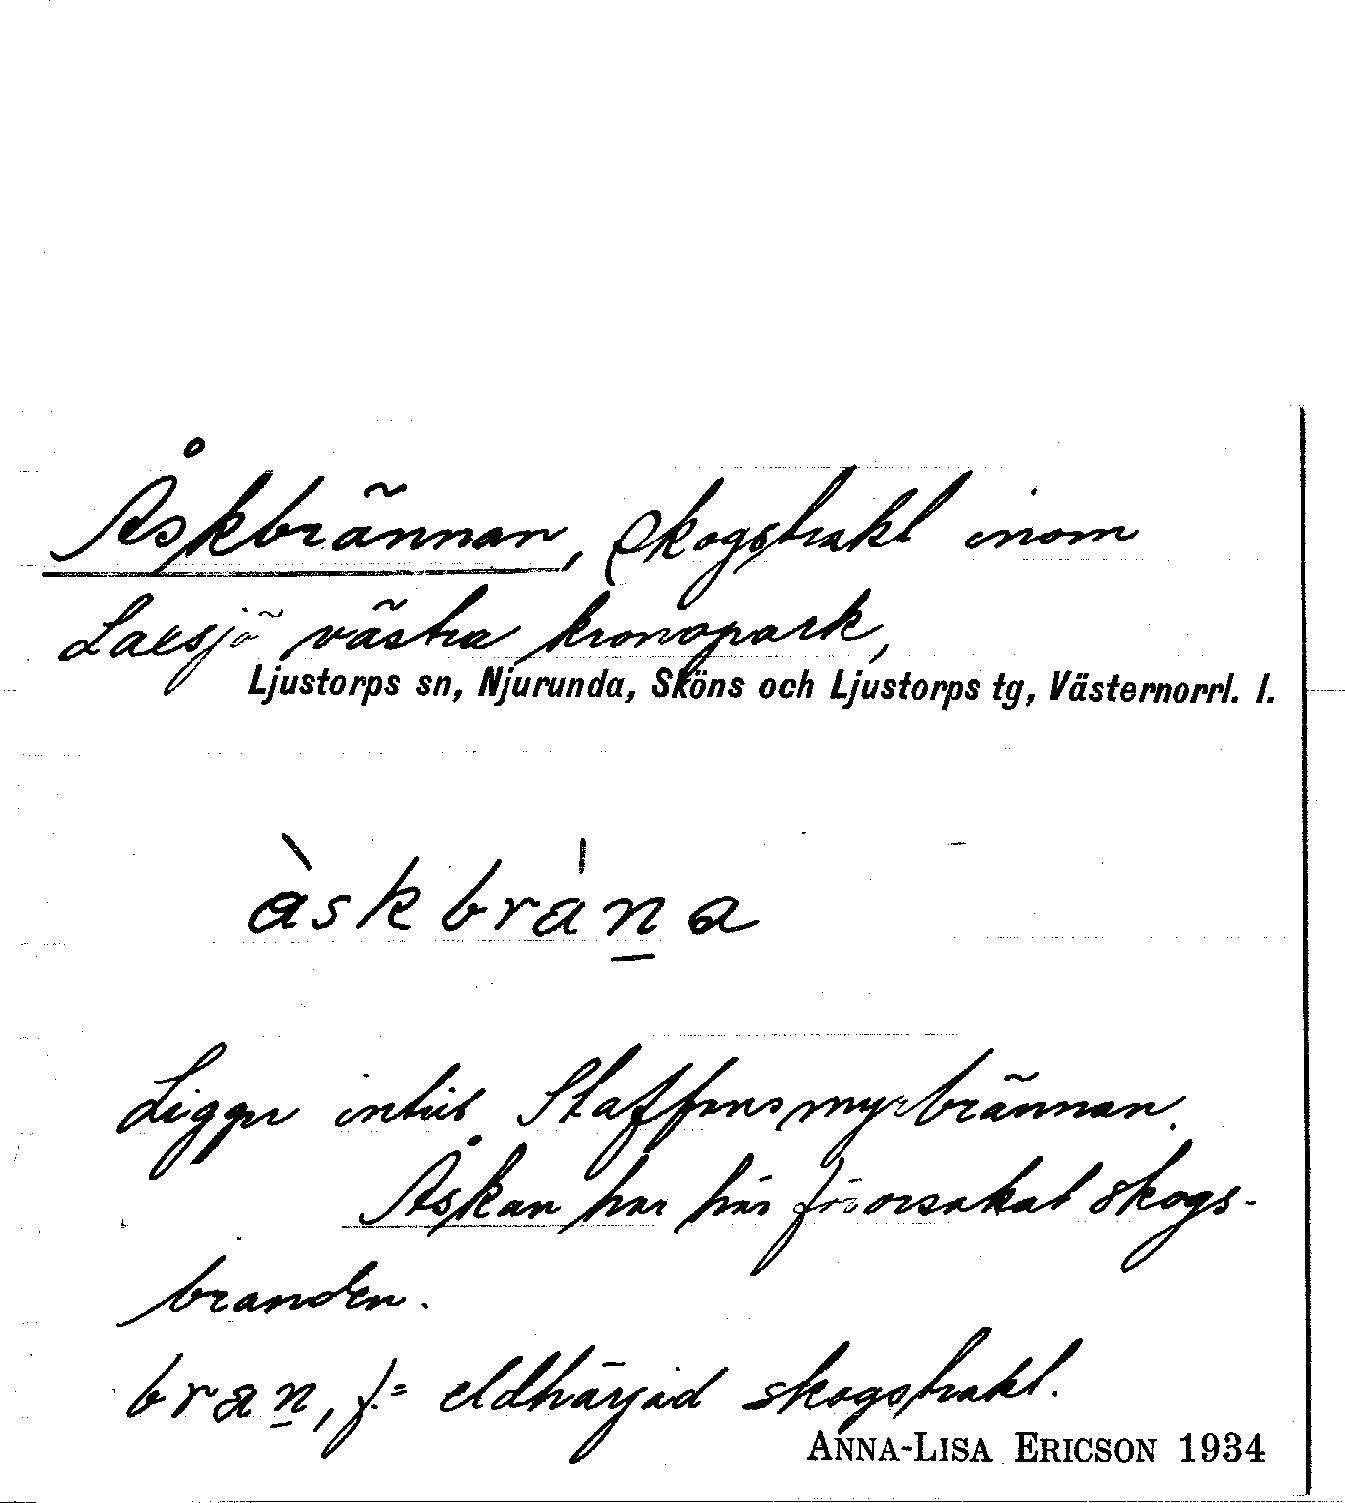 Åskbrännan, skogstrakt inom
Laxsjö västra kronopark,
Ljustorps sn, Njurunda, Sköns och Ljustorps tg, Västernorrl. l.
àskbrana
Ligger intill Staffansmyrbrännan.
Åskan har här förorsakat skogs-
branden.
bran, f. = eldhärjad skogstrakt.
ANNA-LISA ERICSON 1934